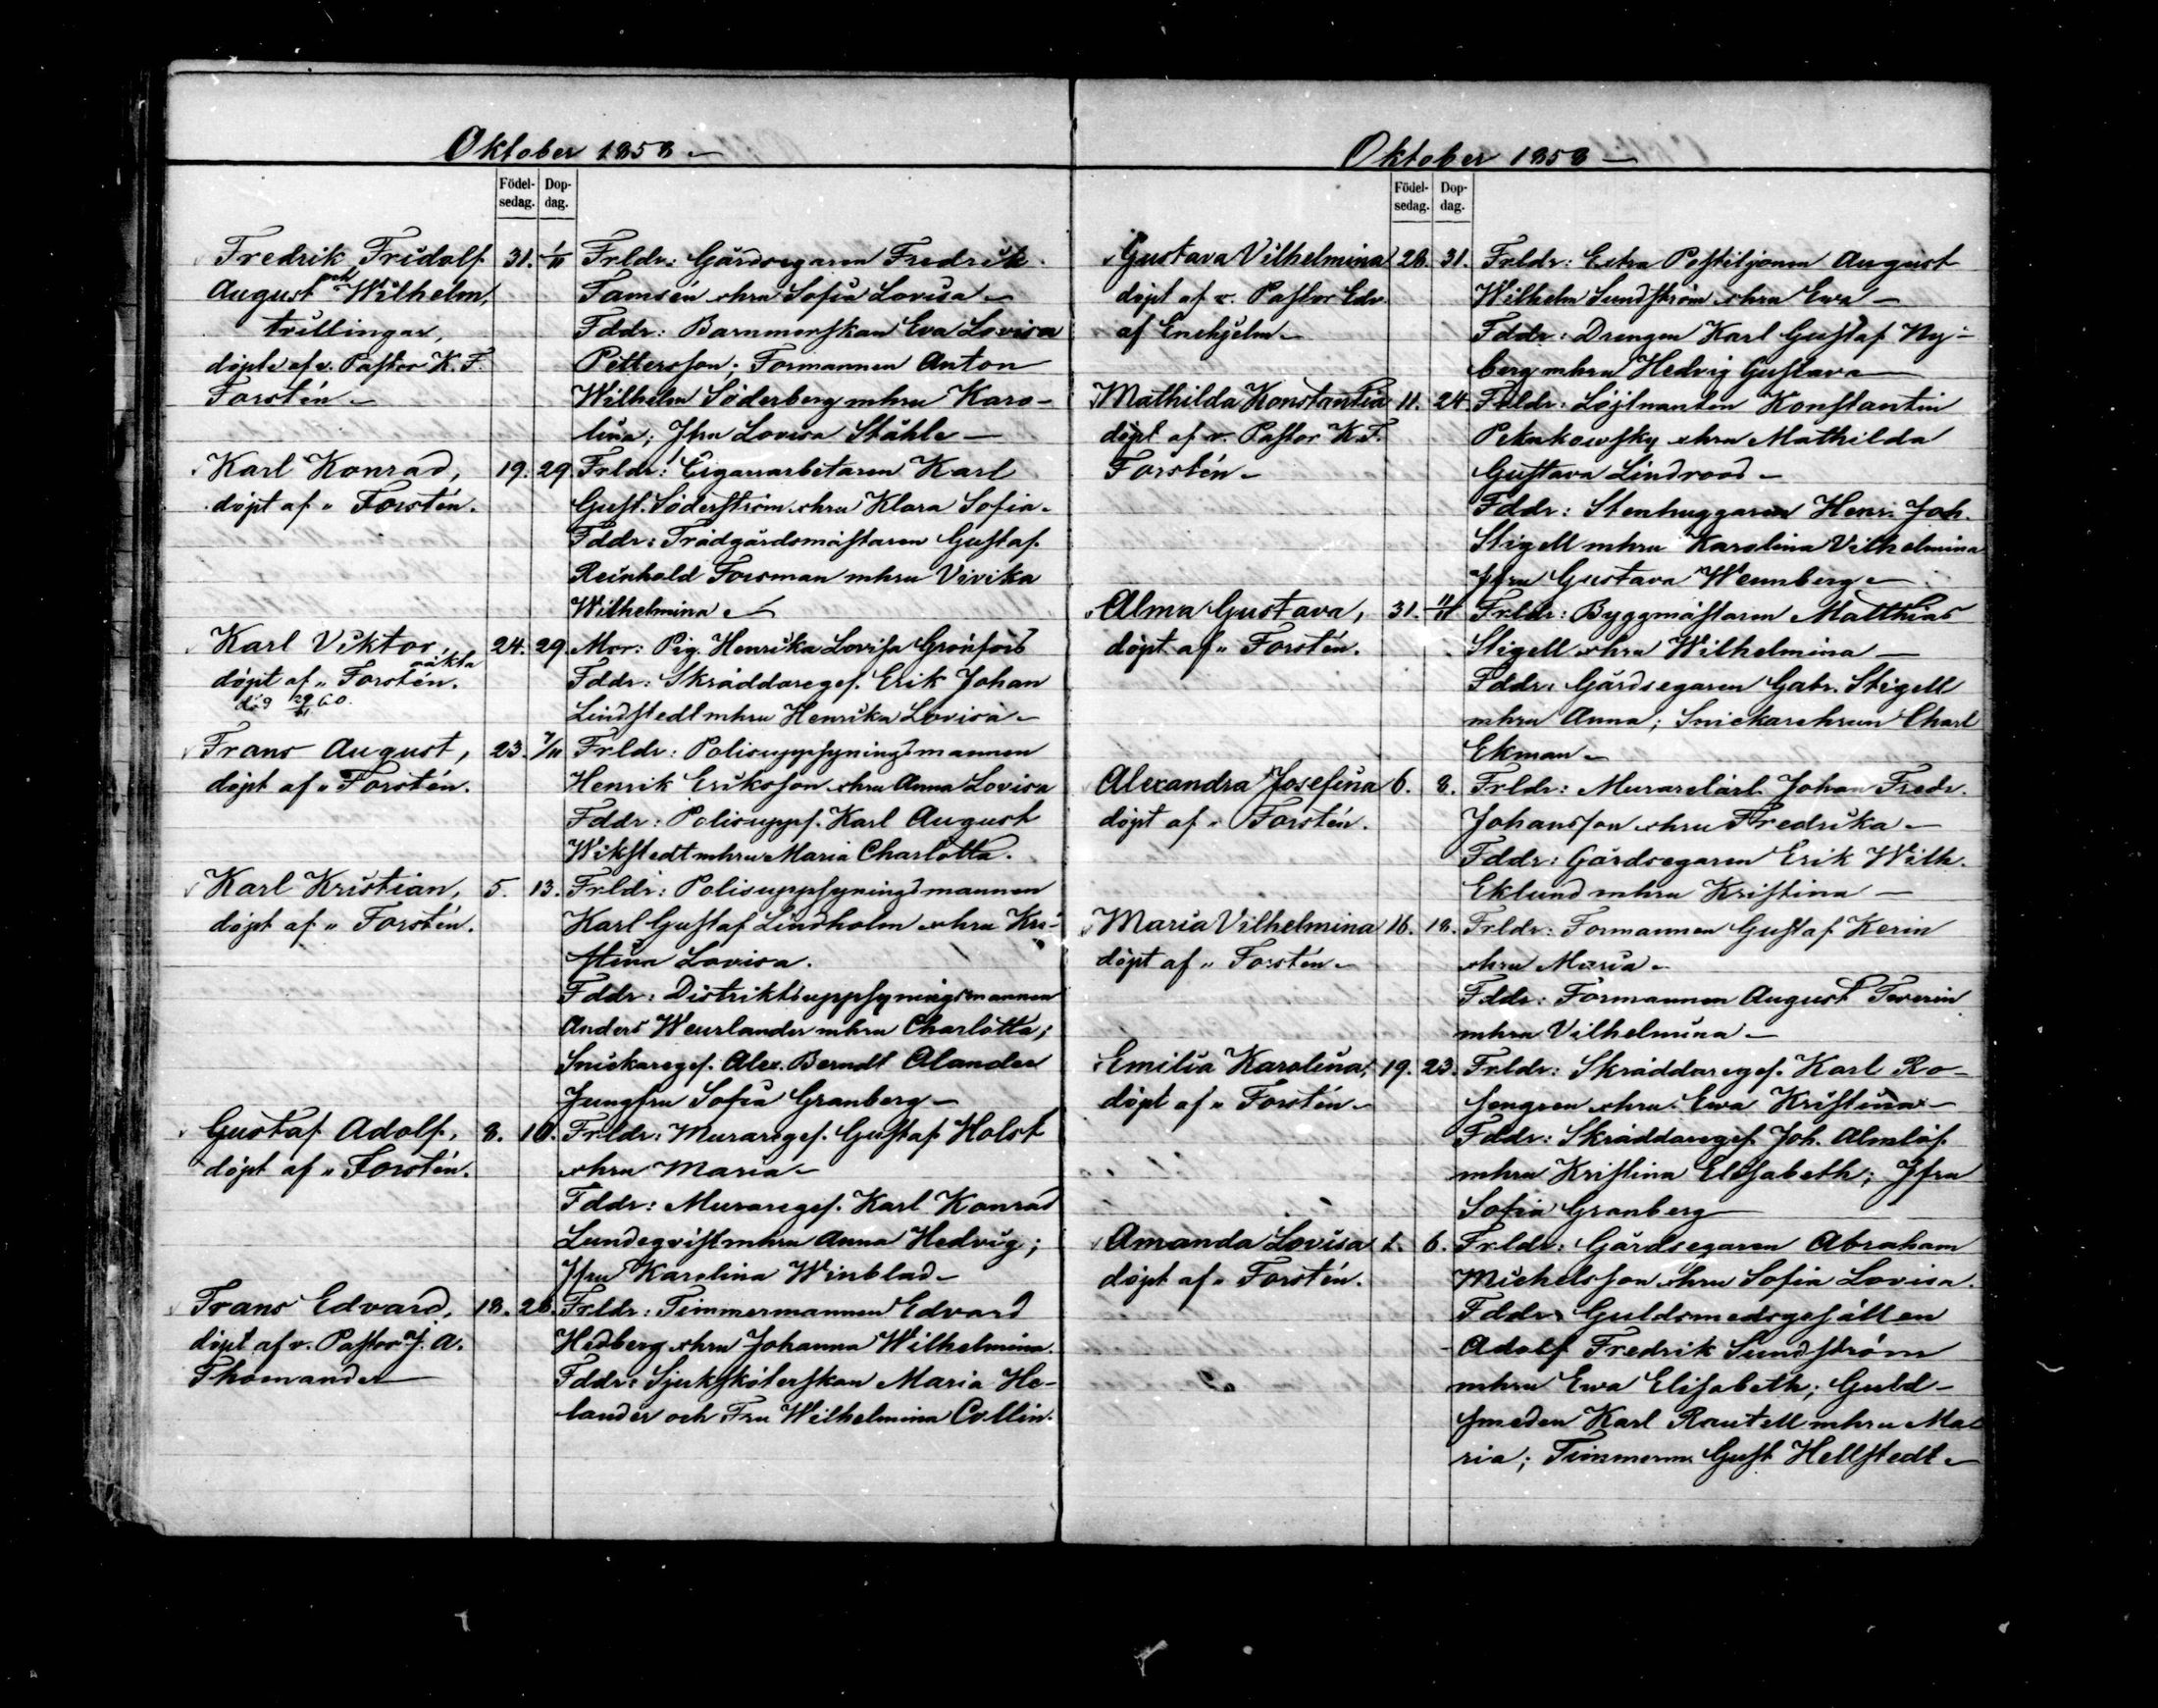 Oktober 1858 –
Födel-
sedag.
Dop-
dag.
Fredrik Fridolf
August och Wilhelm,
trillingar,
döpte af v. Pastor K. F.
Forstén –
31. 1/11
Frldr: Gårdsegaren Fredrik
Tamsén o hru Sofia Lovisa –
Fddr: Barnmorskan Eva Lovisa
Pettersson; Formannen Anton
Wilhelm Söderberg m hru Karo-
lina; Jfru Lovisa Ståhle –
Karl Konrad,
döpt af „ Forstén.
19. 29
Frldr: Cigarrarbetaren Karl
Gust. Söderström o hru Klara Sofia.
Fddr: Trädgårdsmästaren Gustaf
Reinhold Forsman m hru Vivika
Wilhelmina –
Karl Viktor, oäkta
döpt af „ Forstén.
dög 29/11 60.
24. 29
Mor: Pig. Henrika Lovisa Grönfors
Fddr: Skräddareges. Erik Johan
Lindstedt m hru Henrika Lovisa –
Frans August,
döpt af „ Forstén.
23. 7/11
Frldr: Polisuppsyningsmannen
Henrik Eriksson o hru Anna Lovisa
Fddr: Polisupps. Karl August
Wikstedt m hru Maria Charlotta.
Karl Kristian,
döpt af „ Forstén.
5. 13.
Frldr: Polisuppsyningsmannen
Karl Gustaf Lindholm o hru Kri-
stina Lovisa.
Fddr: Distriktsuppsyningsmannen
Anders Weurlander m hru Charlotta;
Snickareges. Alex. Berndt Alander
Jungfru Sofia Granberg –
Gustaf Adolf,
döpt af „ Forstén.
8. 10.
Frldr: Murareges. Gustaf Holst
o hru Maria –
Fddr: Murareges. Karl Konrad
Lundeqvist m hru Anna Hedvig;
Jfru Karolina Winblad –
Frans Edvard,
döpt af v. Pastor J. A.
Thomander
18. 26.
Frldr: Timmermannen Edvard
Hedberg o hru Johanna Wilhelmina.
Fddr: Sjukskoterskan Maria He-
lander och Fru Wilhelmina Collin.
Oktober 1858 –
Födel-
sedag.
Dop-
dag.
Gustava Vilhelmina
döpt af v. Pastor Edv.
af Enehjelm –
28. 31.
Frldr: Extra Postiljonen August
Wilhelm Sundström o hru Ewa –
Fddr: Drengen Karl Gustaf Ny-
berg m hru Hedvig Gustava –
Mathilda Konstantia
döpt af v. Pastor K. F.
Forstén –
11. 24
Frldr: Löjtnanten Konstantin
o hru Mathilda
Gustava Lindroos –
Fddr: Stenhuggaren Henr. Joh.
Stigell m hru Karolina Vilhelmina
Jfru Gustava Wennberg –
Alma Gustava,
döpt af „ Forstén.
31. 11/11
Frldr: Byggmästaren Matthias
Stigell o hru Wilhelmina –
Fddr: Gårdsegaren Gabr. Stigell
m hru Anna; Snickarehrun Charl
Ekman –
Alexandra Josefina
döpt af „ Forstén.
6. 8.
Frldr: Murarelärl. Johan Fredr.
Johansson o hru Fredrika –
Fddr: Gårdsegaren Erik Wilh.
Eklund m hru Kristina –
Maria Vilhelmina
döpt af „ Forstén –
16. 18.
Frldr: Formannen Gustaf Kerin
o hru Maria –
Fddr: Formannen August Tverin
m hru Vilhelmina –
Emilia Karolina,
döpt af „ Forstén –
19. 23.
Frldr: Skräddareges. Karl Ro-
sengren o hru Ewa Kristina –
Fddr: Skräddareges. Joh. Almlöf
m hru Kristina Elisabeth; Jfru
Sofia Granberg
Amanda Lovisa
döpt af „ Forstén.
6.
Frldr: Gårdsegaren Abraham
Michelsson o hru Sofia Lovisa.
Fddr: Guldsmedsgesällen
Adolf Fredrik Sundström
m hru Ewa Elisabeth; Guld-
smeden Karl Rautell m hru Ma-
ria; Timmerm. Gust Hellstedt –